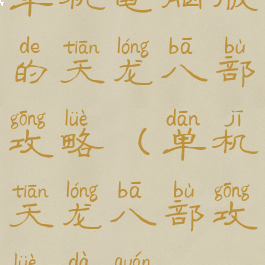 单机电脑版
de tiān lóng bā bù
的天龙八部
gōng lüè dān jī
攻略（单机
tiān lóng bā bù gōng
天龙八部攻
lüè dà quán